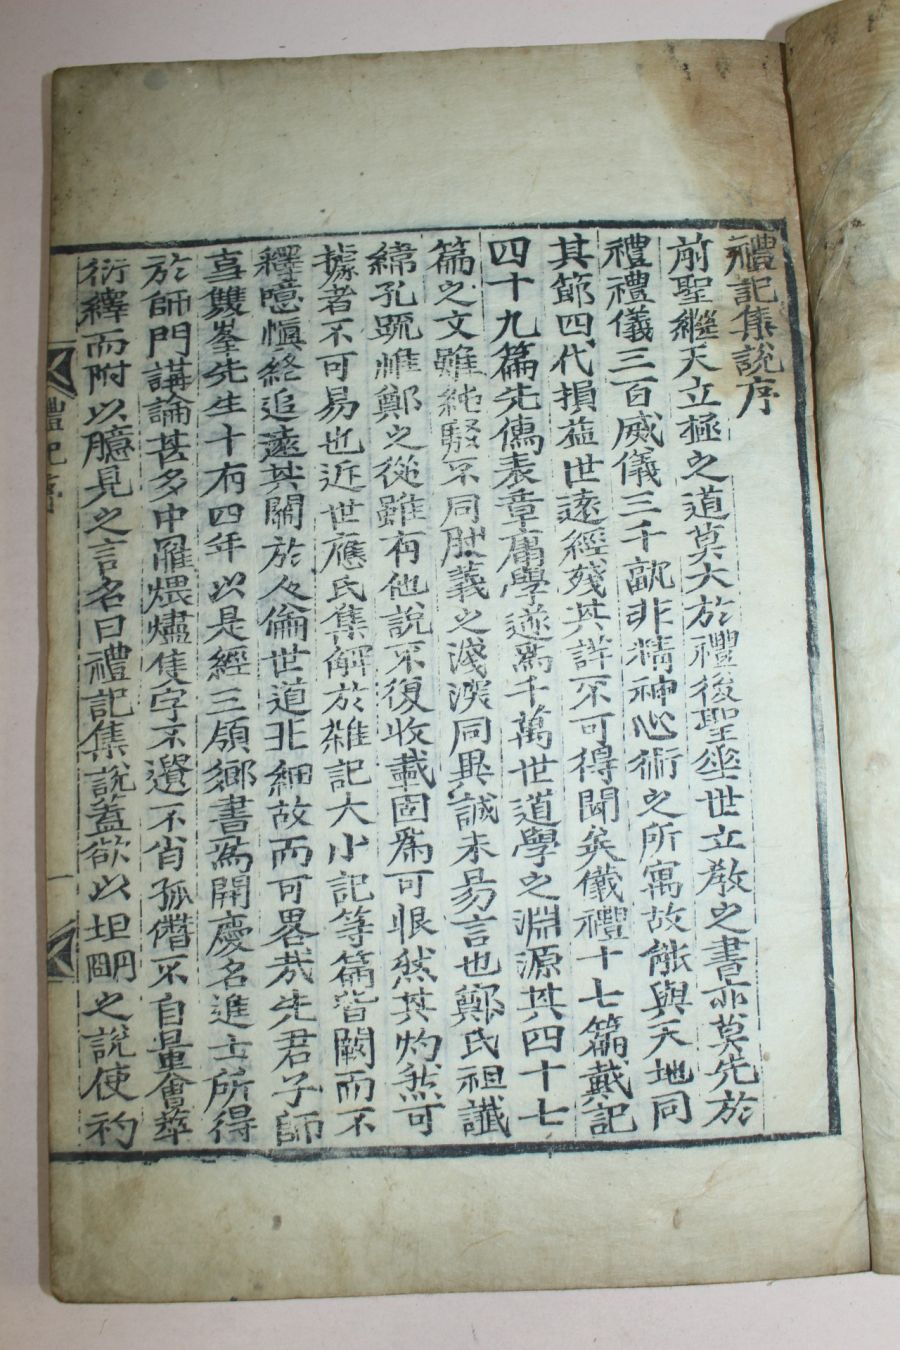 禮記集說序
前聖繼天立極之道莫大於禮後聖垂世立敎之書亦莫先於
禮禮儀三百威儀三千孰非精神心術之所寓故能與天地同
其節四代損益世遠經殘其詳不可得聞矣儀禮十七篇戴記
四十九篇先儒表章庸學遂爲千萬世道學之淵源其四十七
篇之文雖純駁不同然義之淺深同異誠未易言也鄭氏祖讖
緯孔疏惟鄭之從雖有他說不復收載固爲可恨然其灼然可
據者不可易也近世應氏集解於雜記大小記等篇皆闕而不
釋噫愼終追遠其關於人倫世道非細故而可畧哉先君子師
事雙峯先生十有四年以是經三領鄕書爲開慶名進士所得
於師門講論甚多中罹煨燼隻字不遺不肖孤僭不自量會萃
衍繹而附以臆見之言名曰禮記集說蓋欲以坦明之說使初
禮記序
一